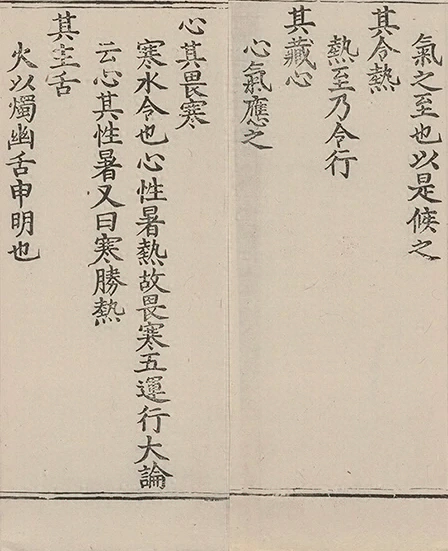 氣之至也以是候之
其令熱
熱至乃令行
其藏心
心氣應之
心其畏寒
寒水令也心性暑熱故畏寒五運行大論
云心其性暑又曰寒勝熱
其主舌
火以燭幽舌申明也